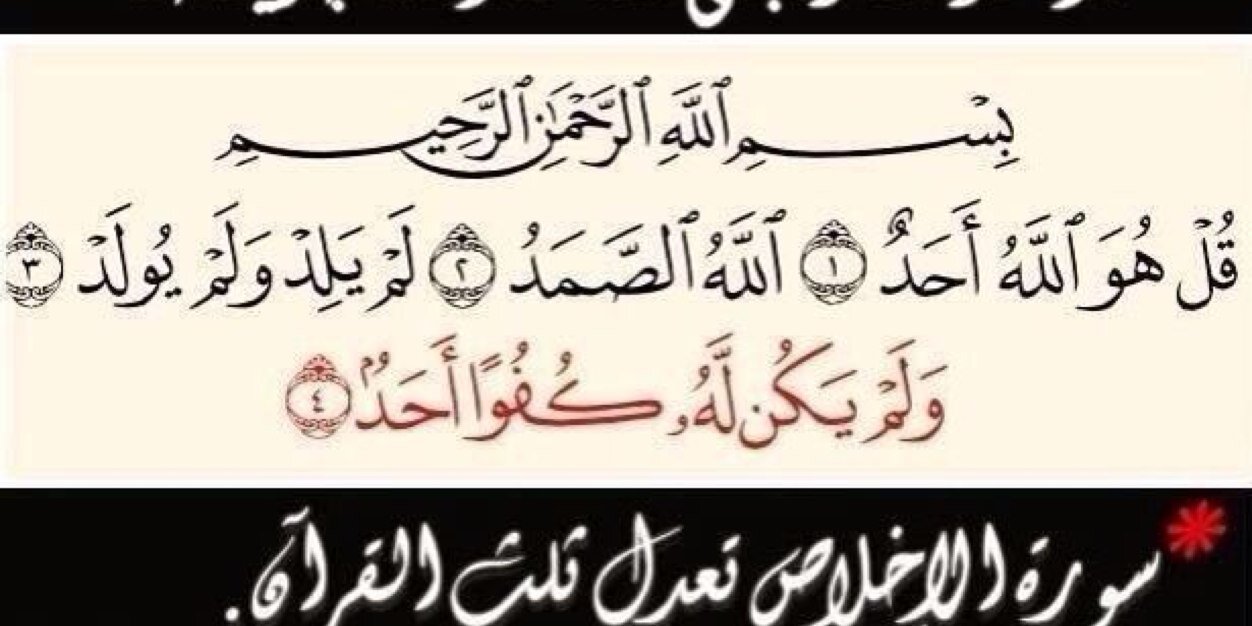 بِسْمِ ٱللَّهِ ٱلرَّحْمَـٰنِ ٱلرَّحِيمِ
قُلْ هُوَ ٱللَّهُ أَحَدٌ ١ ٱللَّهُ ٱلصَّمَدُ ٢ لَمْ يَلِدْ وَلَمْ يُولَدْ ٣
وَلَمْ يَكُن لَّهُۥ كُفُوًا أَحَدٌۢ ٤
سورة الإخلاص تعدل ثلث القرآن.